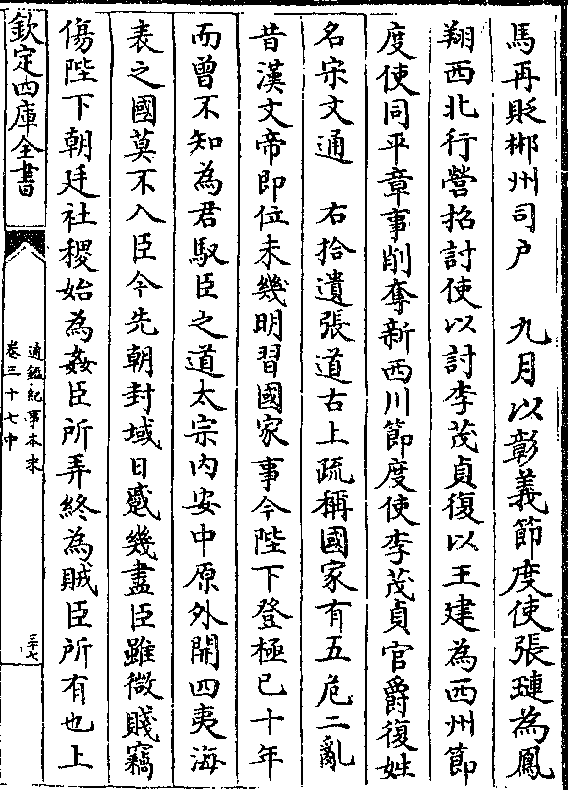 馬再貶郴州司户　九月以彰義節度使張璉為鳳
翔西北行營招討使以討李茂貞復以王建為西州節
度使同平章事削奪新西川節度使李茂貞官爵復姓
名宋文通　右拾遺張道古上疏稱國家有五危二亂
昔漢文帝即位未幾明習國家事今陛下登極已十年
而曾不知為君馭臣之道太宗内安中原外開四夷海
表之國莫不入臣今先朝封域日蹙幾盡臣雖微賤竊
傷陛下朝廷社稷始為姦臣所弄終為賊臣所有也上
欽定四庫全書
通鑑紀事本末
卷三十七中
三十七